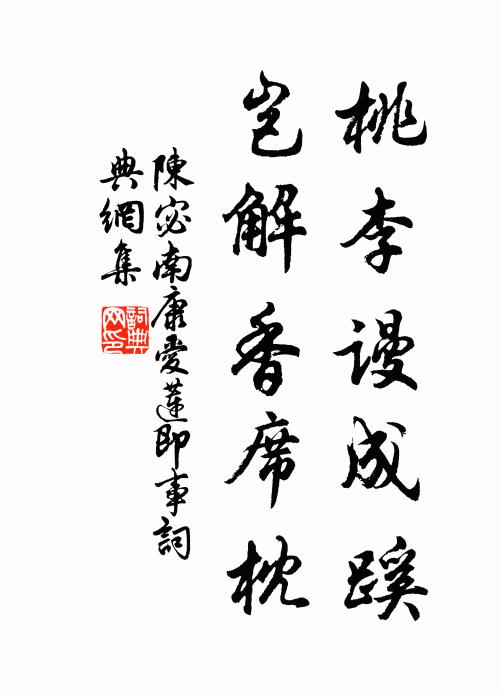 桃李谩成蹊
岂解香席枕
陳宓南康愛蓮即事詞
典網集
詞典网印